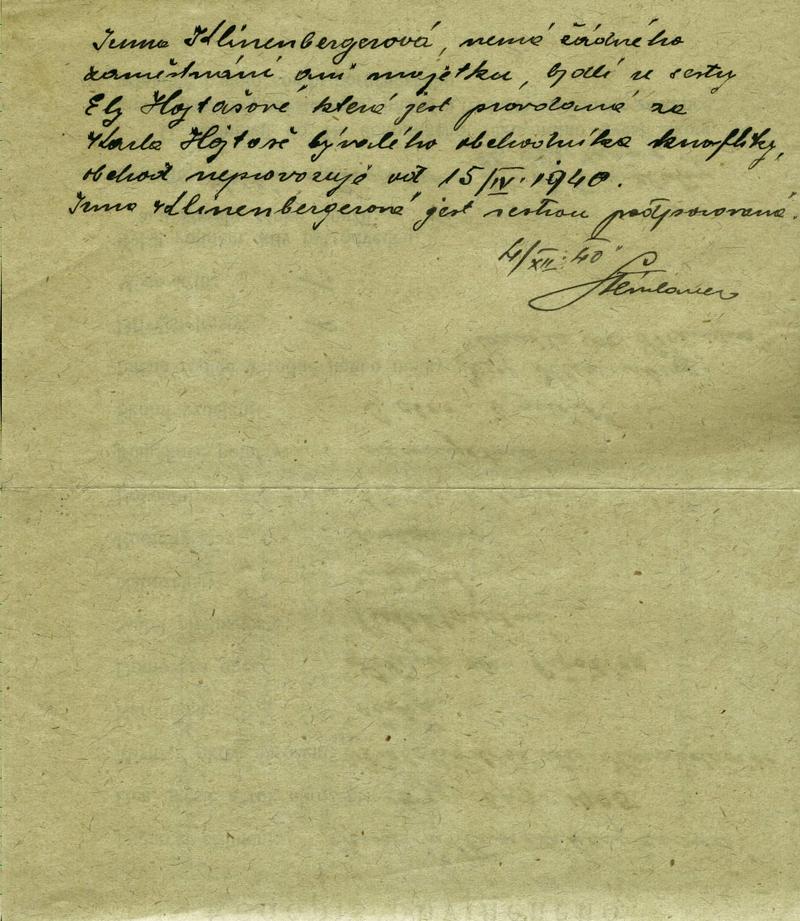 Irma Klinenbergerová, nemá žádného
zaměstnání ani majetku, bydlí u sestry
Ely Hojtašové která jest provdaná za
Karla Hojtaše bývalého obchodníka knoflíky,
obchod neprovozuje od 15/IV. 1940.
Irma Klinenbergerová jest sestrou podporovaná.
4/XII. 40